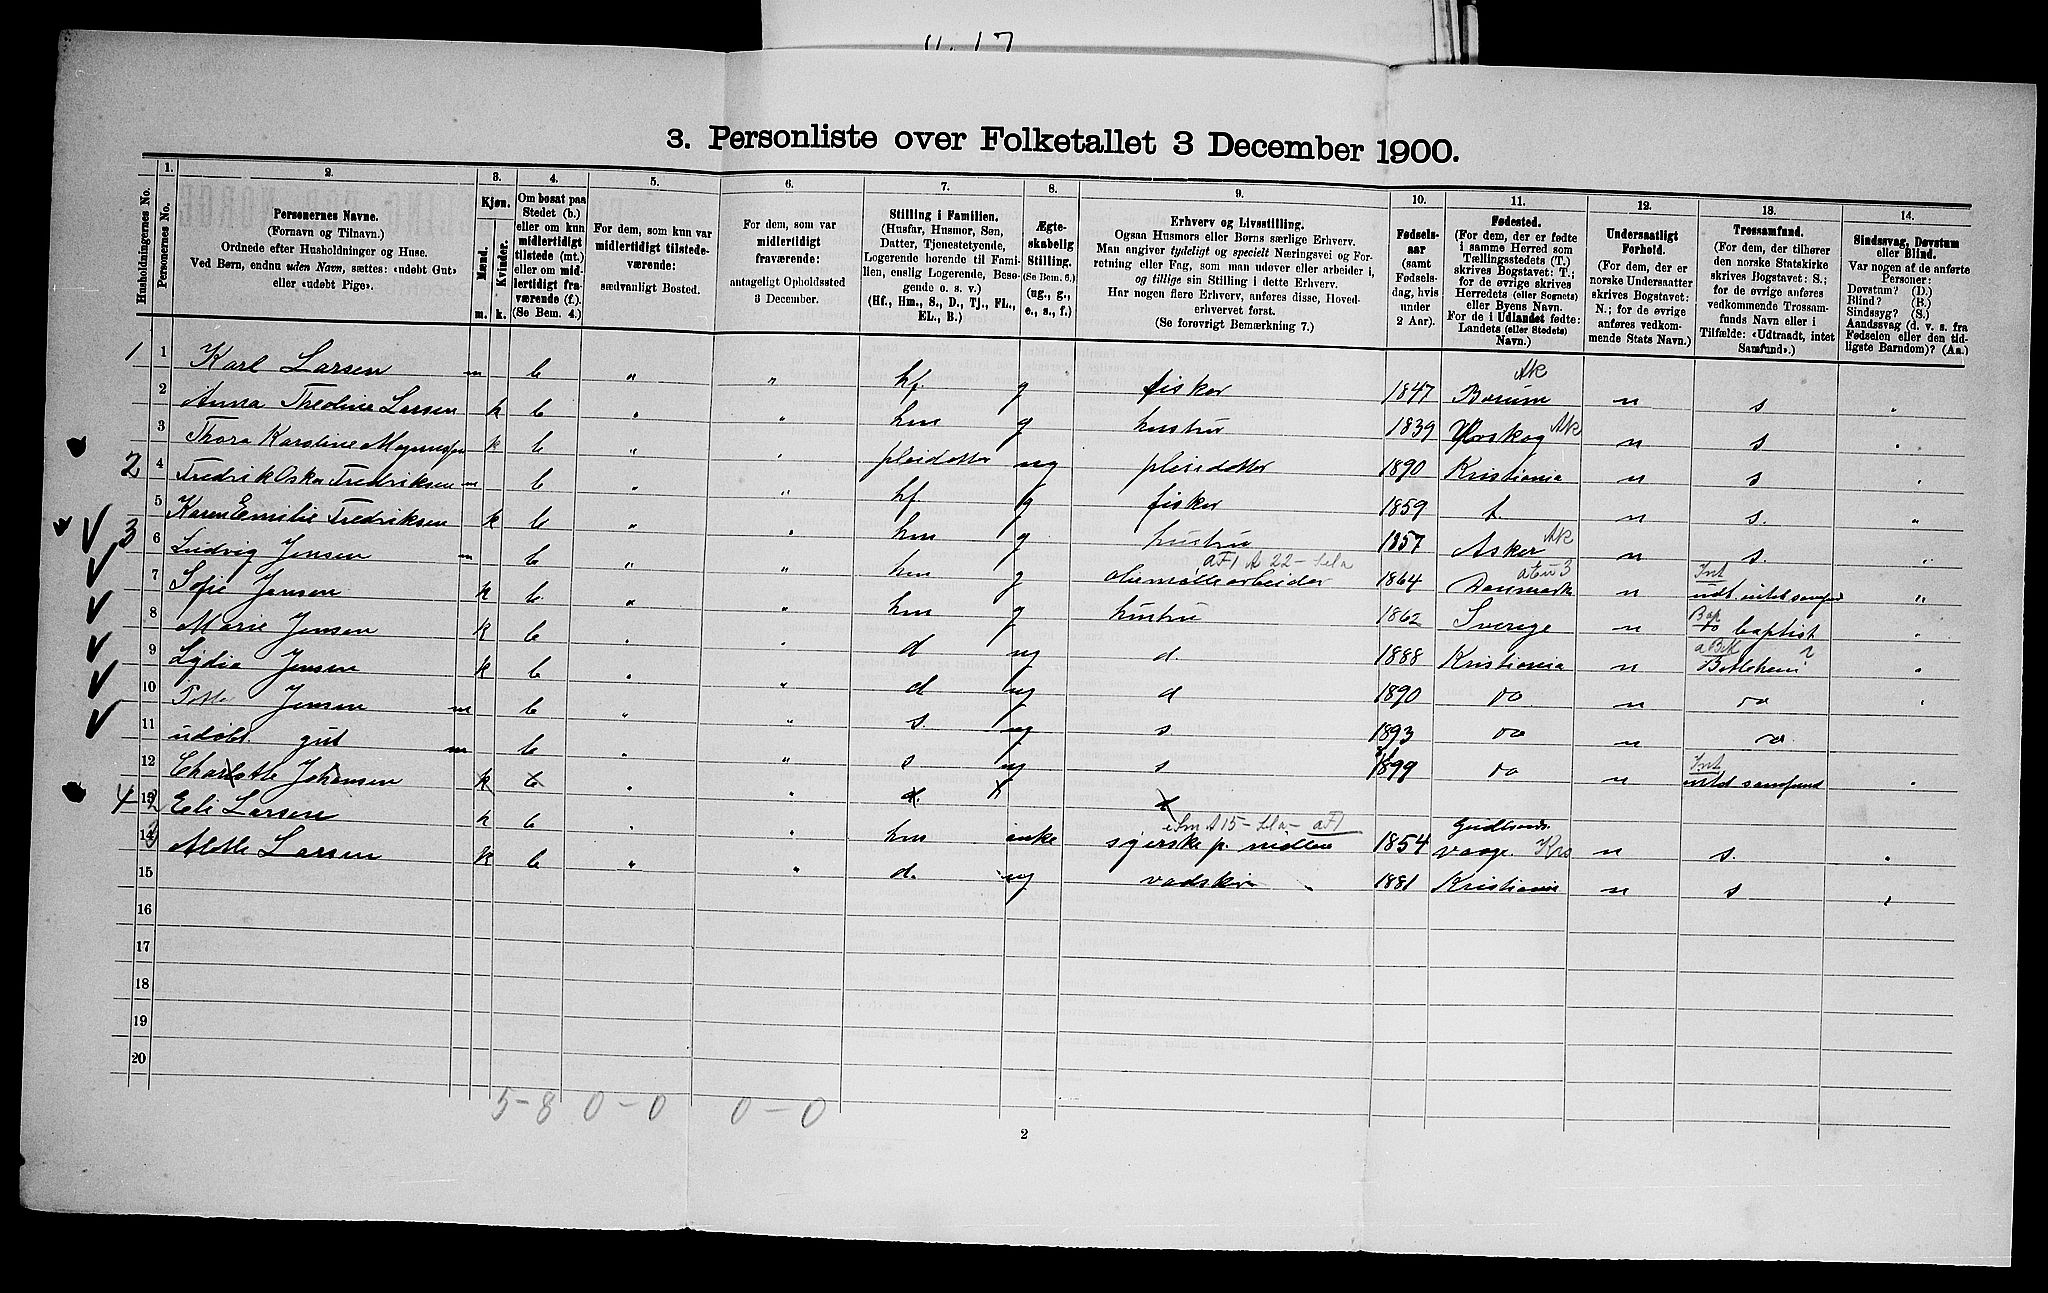 11. 17
3. Personliste over Folketallet 3 December 1900.
1. 2. 3. 4. 5. 6. 7. 8. 9. 10. 11. 12. 13. 14.
Husholdningernes No.
Personernes No.
Personernes Navne.
(Fornavn og Tilnavn.)
Ordnede efter Husholdninger og Huse.
Ved Børn, endnu uden Navn, sættes: «udøbt Gut»
eller «udøbt Pige».
Kjøn.
Mænd.
Kvinder.
m. k.
Om bosat paa
Stedet (b.)
eller om kun
midlertidigt
tilstede (mt.)
eller om mid-
lertidigt fra-
værende (f.).
(Se Bem. 4.)
For dem, som kun var
midlertidigt tilstede-
værende:
sædvanligt Bosted.
For dem, som var
midlertidigt
fraværende:
antageligt Opholdssted
3 December.
Stilling i Familien.
(Husfar, Husmor, Søn,
Datter, Tjenestetyende,
Logerende hørende til Fami-
lien, enslig Logerende, Besø-
gende o. s. v.)
(Hf., Hm., S., D., Tj., FL.,
EL., B.)
Ægte-
skabelig
Stilling.
(Se Bem. 6.)
(ug., g.,
e., s., f.)
Erhverv og Livsstilling.
Ogsaa Husmors eller Børns særlige Erhverv.
Man angiver tydeligt og specielt Næringsvei og For-
retning eller Fag, som man udøver eller arbeider i,
og tillige sin Stilling i dette Erhverv.
Har nogen flere Erhverv, anføres disse, Hoved-
erhvervet først.
(Se forøvrigt Bemærkning 7.)
Fødsels-
aar
(samt
Fødsels-
dag, hvis
under
2 Aar).
Fødested.
(For dem, der er fødte
i samme Herred som
Tællingsstedets (T.)
skrives Bogstavet: T.;
for de øvrige skrives
Herredets (eller Sognets)
eller Byens Navn.
For de i Udlandet fødte:
Landets (eller Stedets)
Navn.)
Undersaatligt
Forhold.
(For dem, der er
norske Undersaatter
skrives Bogstavet:
N.; for de øvrige
anføres vedkom-
mende Stats Navn.)
Trossamfund.
(For dem, der tilhører
den norske Statskirke
skrives Bogstavet: S.;
for de øvrige anføres
vedkommende Trossam-
funds Navn eller i
Tilfælde: «Udtraadt, intet
Samfund».)
Sindssvag, Døvstum
eller Blind.
Var nogen af de anførte
Personer:
Døvstum? (D.)
Blind? (B.)
Sindssyg? (S.)
Aandssvag (d. v. s. fra
Fødselen eller den tid-
ligste Barndom)? (Aa.)
1 1 Karl Larsen m b " " hf. g fisker 1847 Bærum Ak n s "
2 Anna Thedine Larsen k b " " hm g hustru 1839 Urskog Ak n s "
3 Thora Karstine k b " " pleidatter ug pleiedatter 1890 Kristiania n s "
2 4 Fredrik Oskar Fredriksen m b " " hf. g fisker 1859 t. n s. "
5 Karen Emilie Fredriksen k b " " hm g hustru 1857 Asker Ak n s.
3 6 Ludvig Jensen m b " " hm g oliemøllearbeider 1864 Danmark n Int udt. intet samfund "
7 Sofie Jensen k b. " " hm g hustru 1862 Sverige n Bap baptist "
8 Marie Jensen k b " " d ug d. 1888 Kristiania n Betlehem ? "
9 Lydia Jensen k b " " d ug d 1890 do n do "
10 Jensen m b " " s. ug s 1893 do n do
11 udøbt gut m b " " s ug s 1899 do n Int intet samfund "
12 Charlotte Johansen k b " " d. d
4 13 2 Eli Larsen k b " " hm enke syerske p. 1854 Vaage. Krs n s. "
14 3 Alette Larsen k b " " d. ug 1881 Kristiania n s "
15
16
17
18
19
20
5 - 8 0 - 0 0 - 0
2